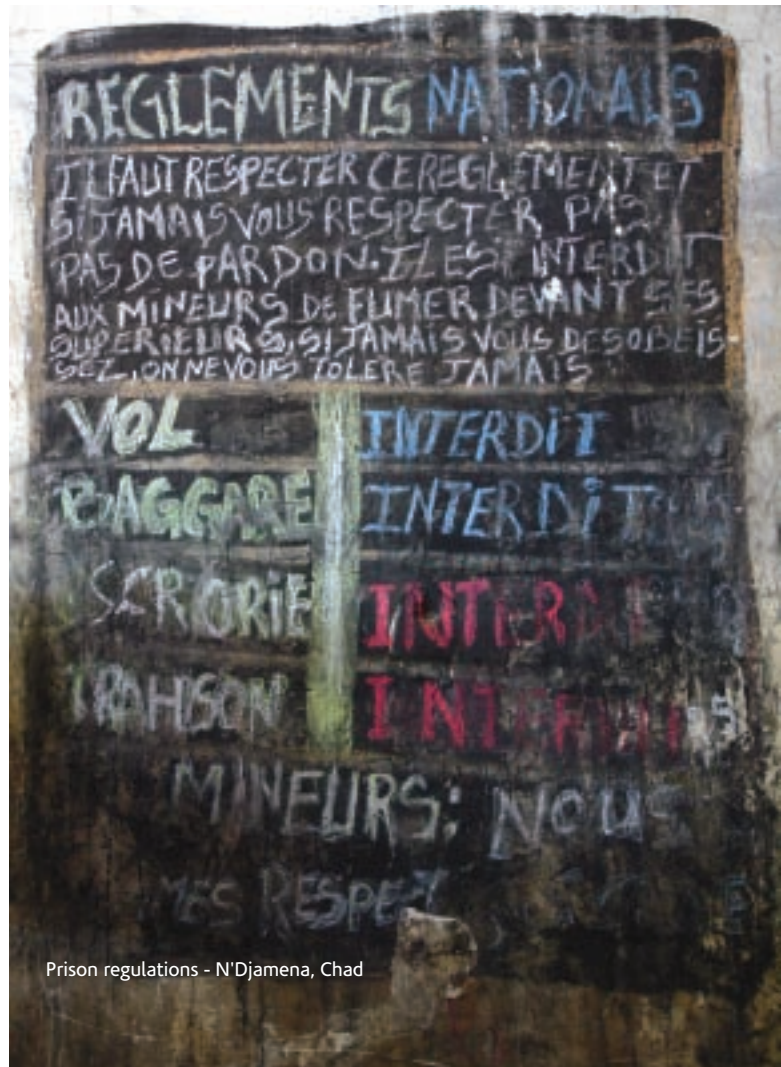 REGLEMENTS NATIONALS
IL FAUT RESPECTER CE REGLEMENT ET
SI JAMAIS VOUS RESPECTER PAS
PAS DE PARDON. IL EST INTERDIT
AUX MINEURS DE FUMER DEVANT SES
SUPERIEURS, SI JAMAIS VOUS DESOBEIS
SEZ, ON NE VOUS TOLERE JAMAIS
VOL INTERDIT
BAGGARE INTERDIT
INTERDIT
TRAHISON INTERDIT
MINEURS: NOUS
Prison regulations - N'Djamena, Chad